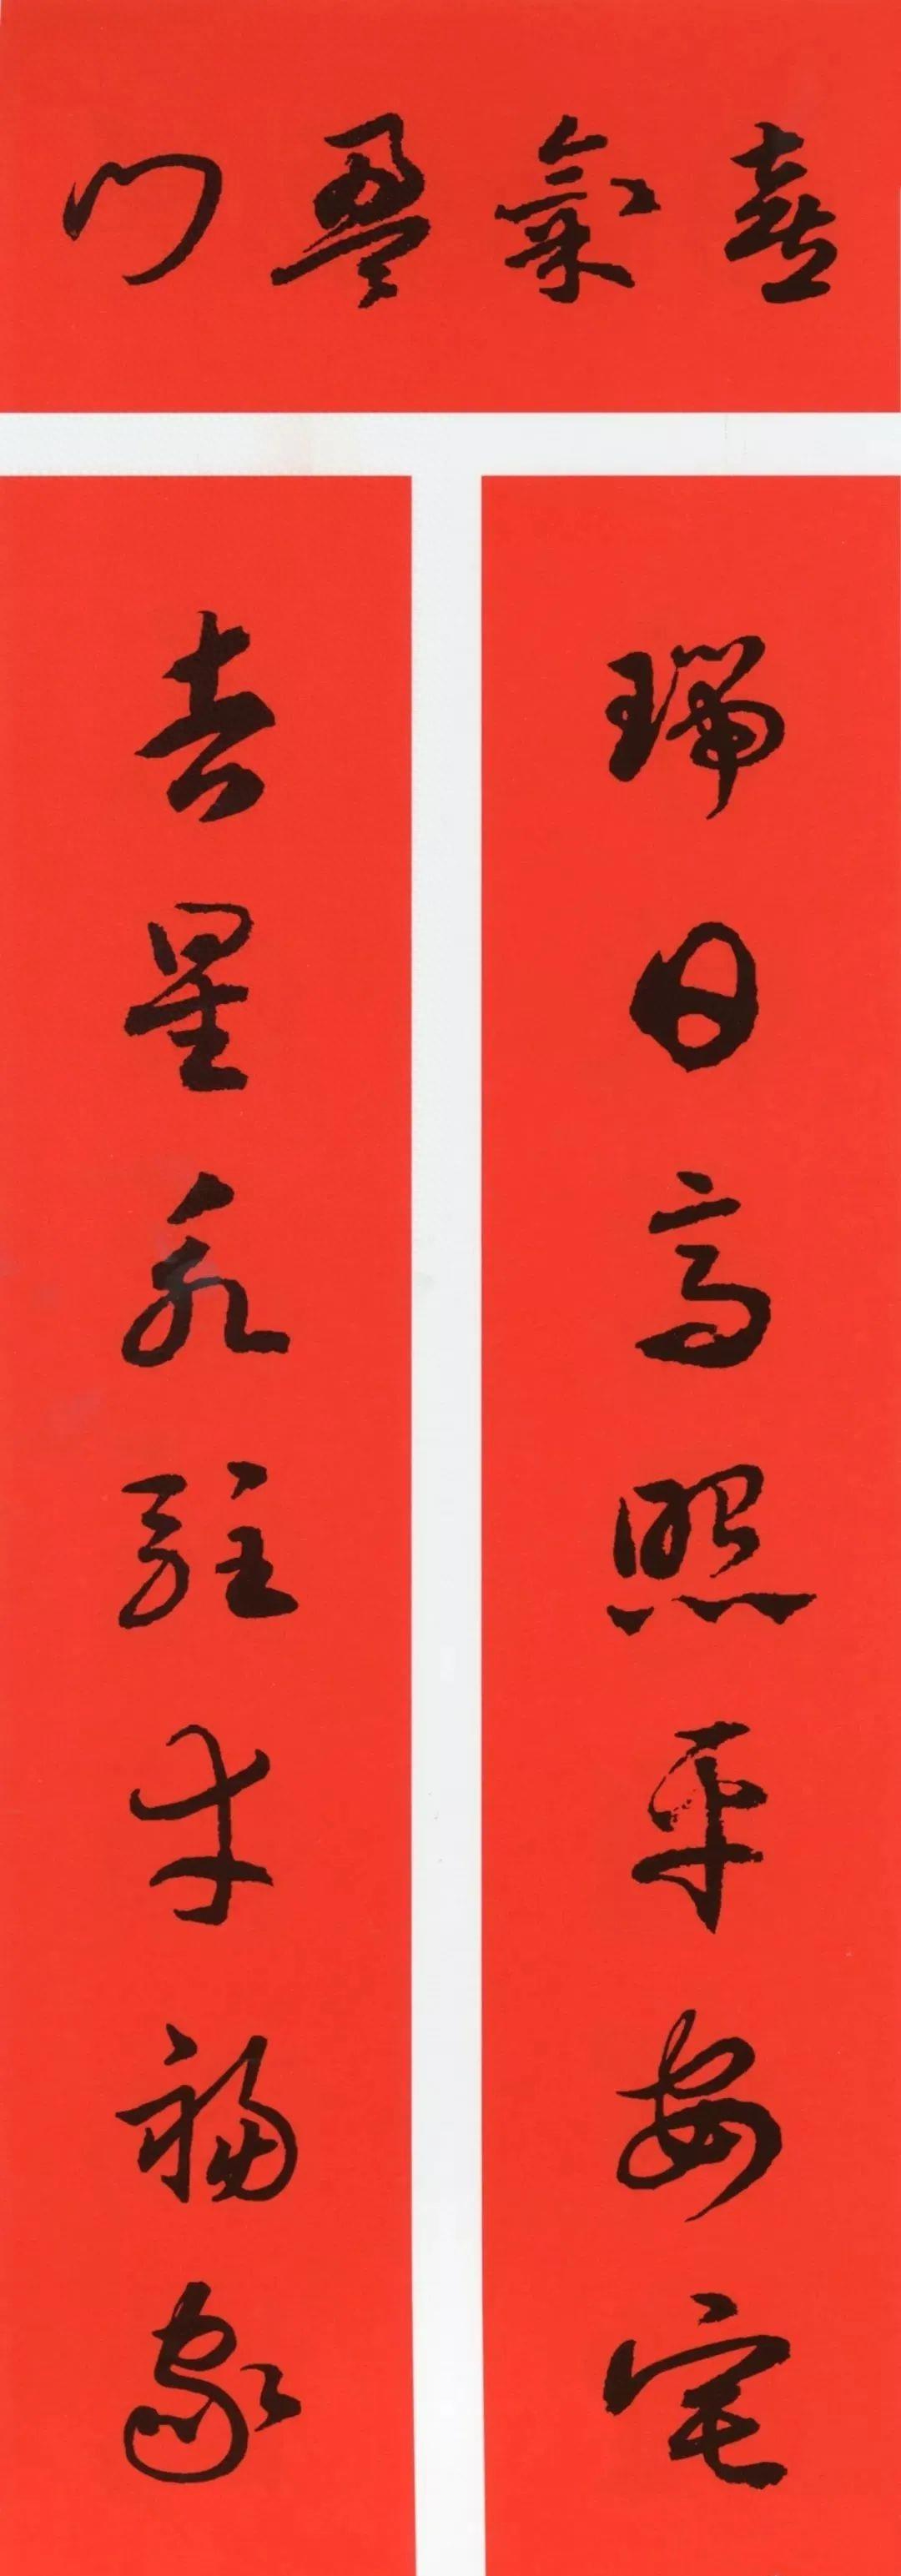 喜氣盈门
瑞日高照平安宅
吉星永駐幸福家